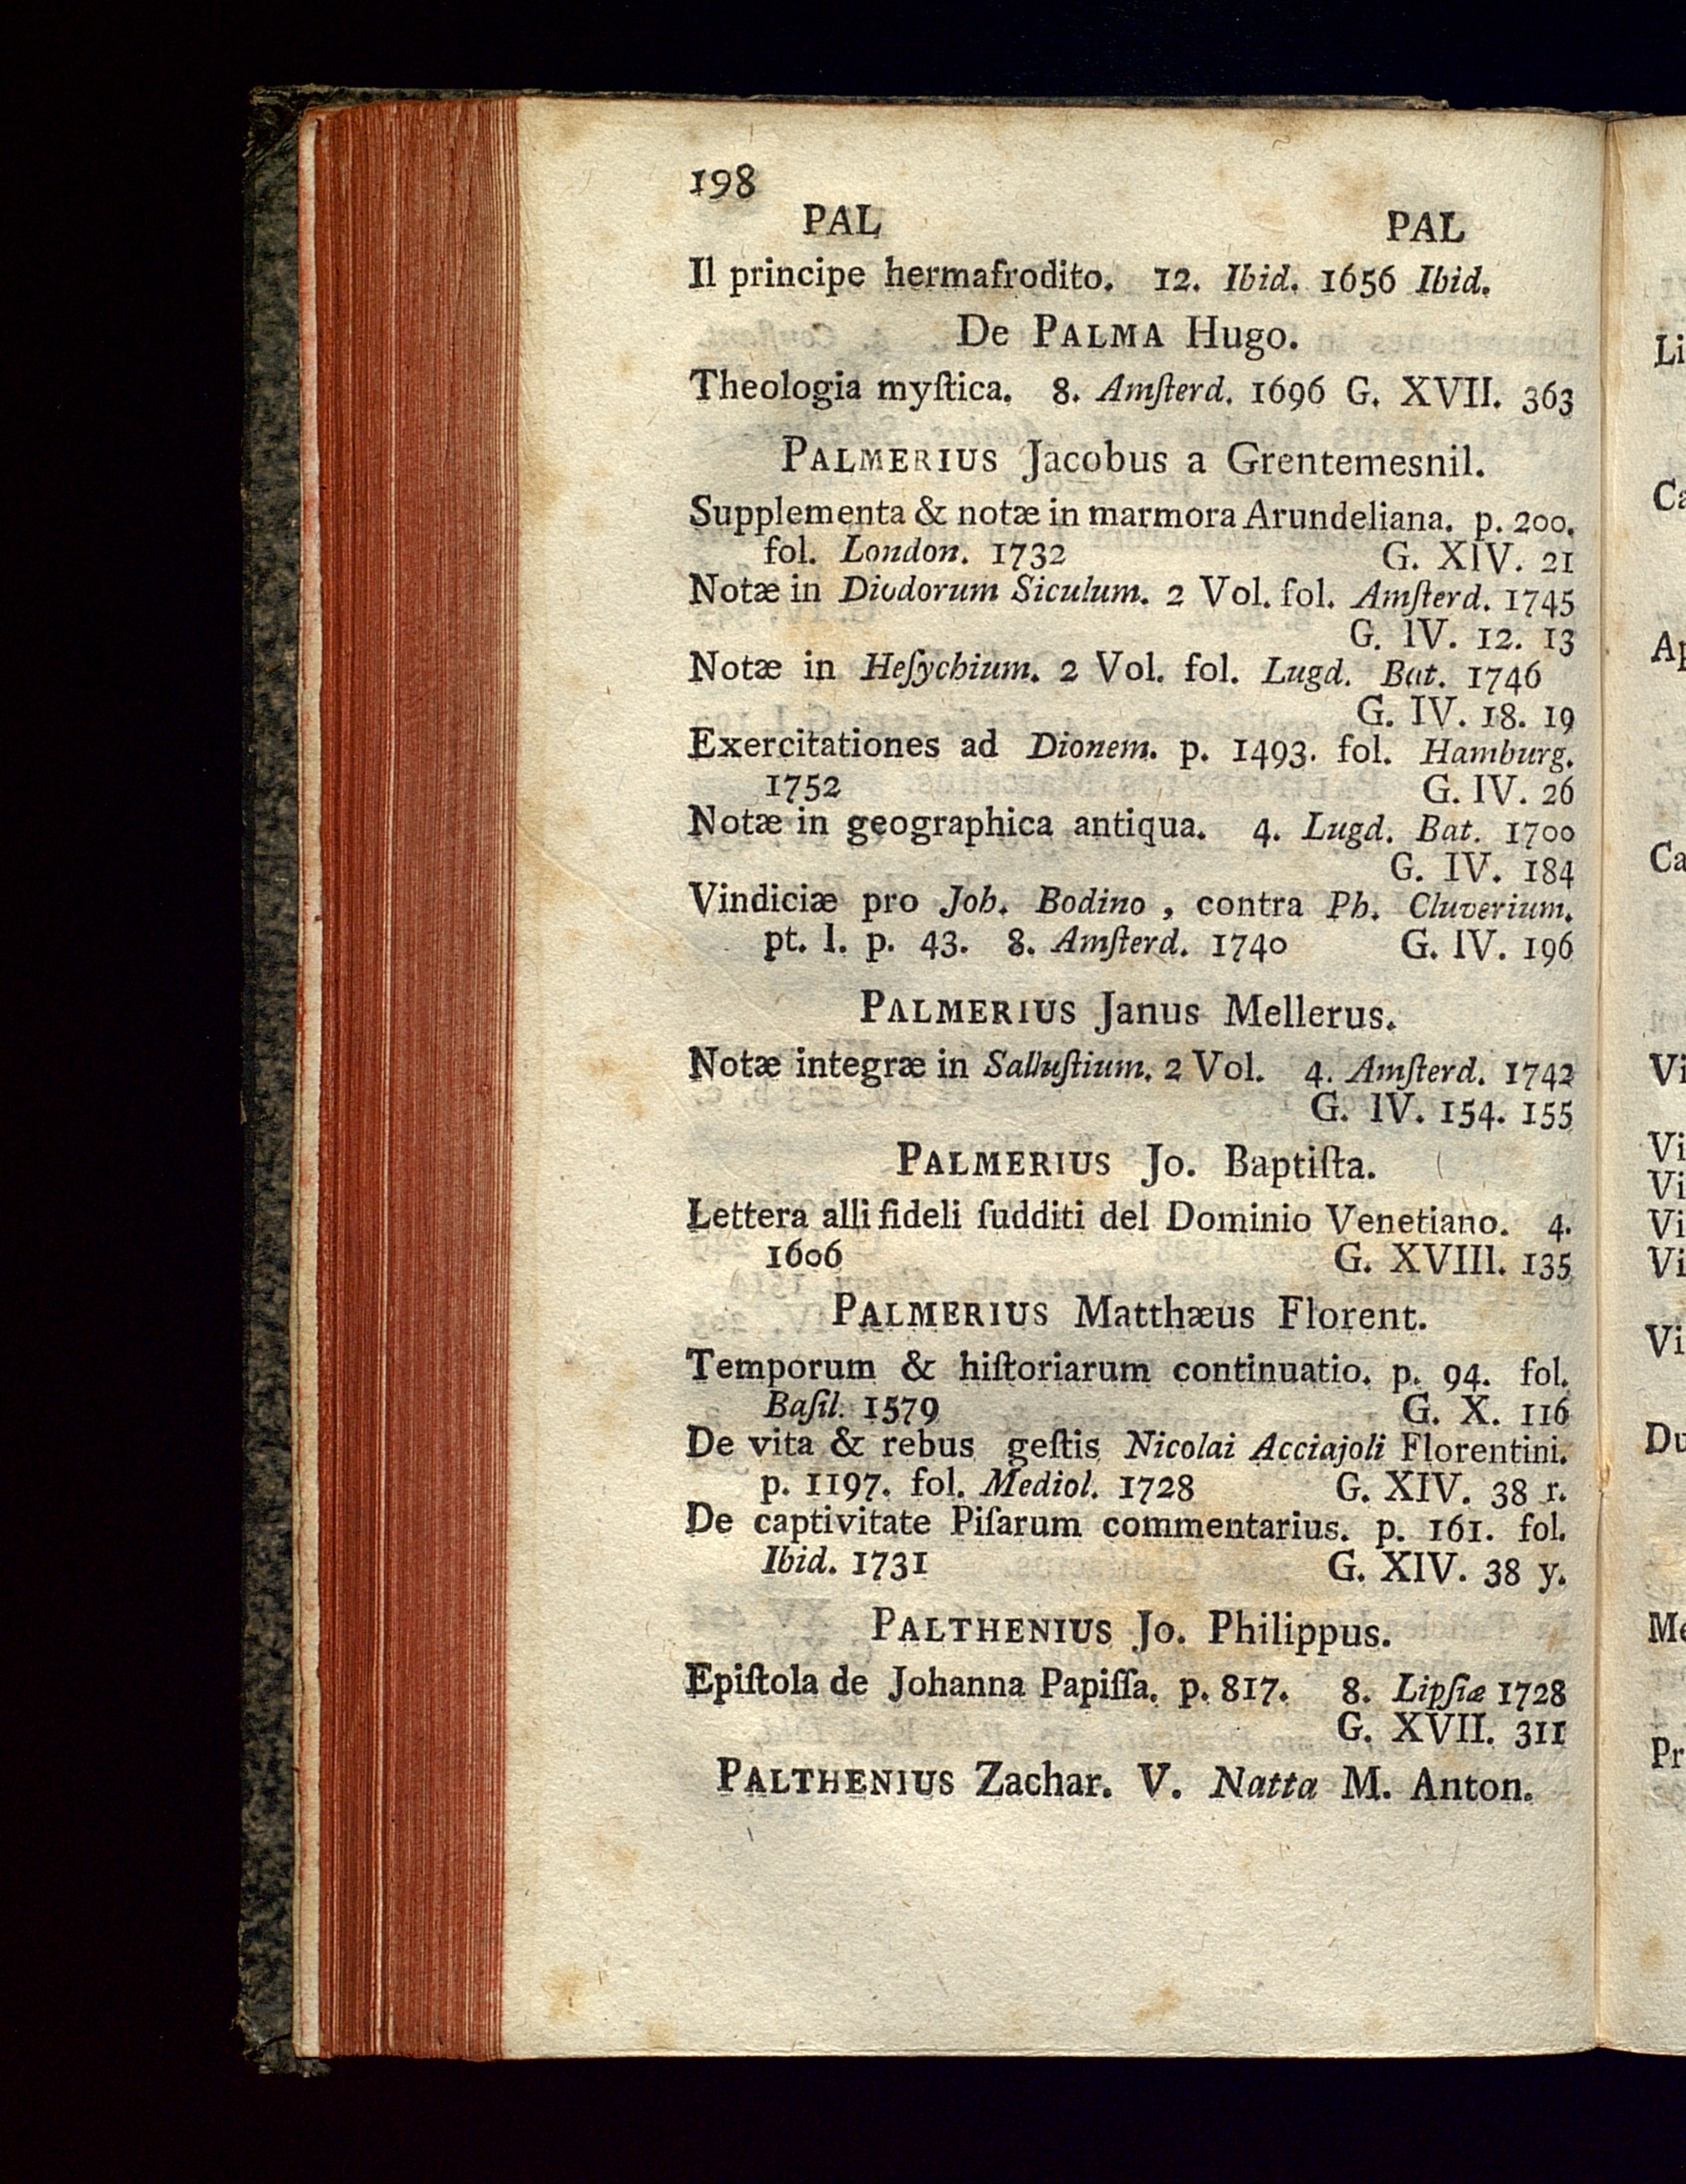 198
PAL PAL
Il principe hermafrodito. 12. Ibid. 1656 Ibid.
De PALMA Hugo.
Theologia myſtica. 8. Amſterd. 1696 G. XVII. 363
PALMERIUS Jacobus a Grentemesnil.
Supplementa & notæ in marmora Arundeliana. p. 200.
fol. London. 1732 G. XIV. 21
Notæ in Diodorum Siculum. 2 Vol. fol. Amſterd. 1745
G. IV. 12. 13
Notæ in Heſychium. 2 Vol. fol. Lugd. Bat. 1746
G. IV. 18. 19
Exercitationes ad Dionem. p. 1493. fol. Hamburg.
1752 G. IV. 26
Notæ in geographica antiqua. 4. Lugd. Bat. 1700
G. IV. 184
Vindiciæ pro Joh. Bodino, contra Ph. Cluverium.
pt. I. p. 43. 8. Amſterd. 1740 G. IV. 196
PALMERIUS Janus Mellerus.
Notæ integræ in Salluſtium. 2 Vol. 4. Amſterd. 1742
G. IV. 154. 155
PALMERIUS Jo. Baptiſta.
Lettera alli fideli ſudditi del Dominio Venetiano. 4.
1606 G. XVIII. 135
PALMERIUS Matthæus Florent.
Temporum & hiſtoriarum continuatio. p. 94. fol.
Baſil. 1579 G. X. 116
De vita & rebus geſtis Nicolai Acciajoli Florentini.
p. 1197. fol. Mediol. 1728 G. XIV. 38 r.
De captivitate Piſarum commentarius. p. 161. fol.
Ibid. 1731 G. XIV. 38 y.
PALTHENIUS Jo. Philippus.
Epiſtola de Johanna Papiſſa. p. 817. 8. Lipſiæ 1728
G. XVII. 311
PALTHENIUS Zachar. V. Natta M. Anton.